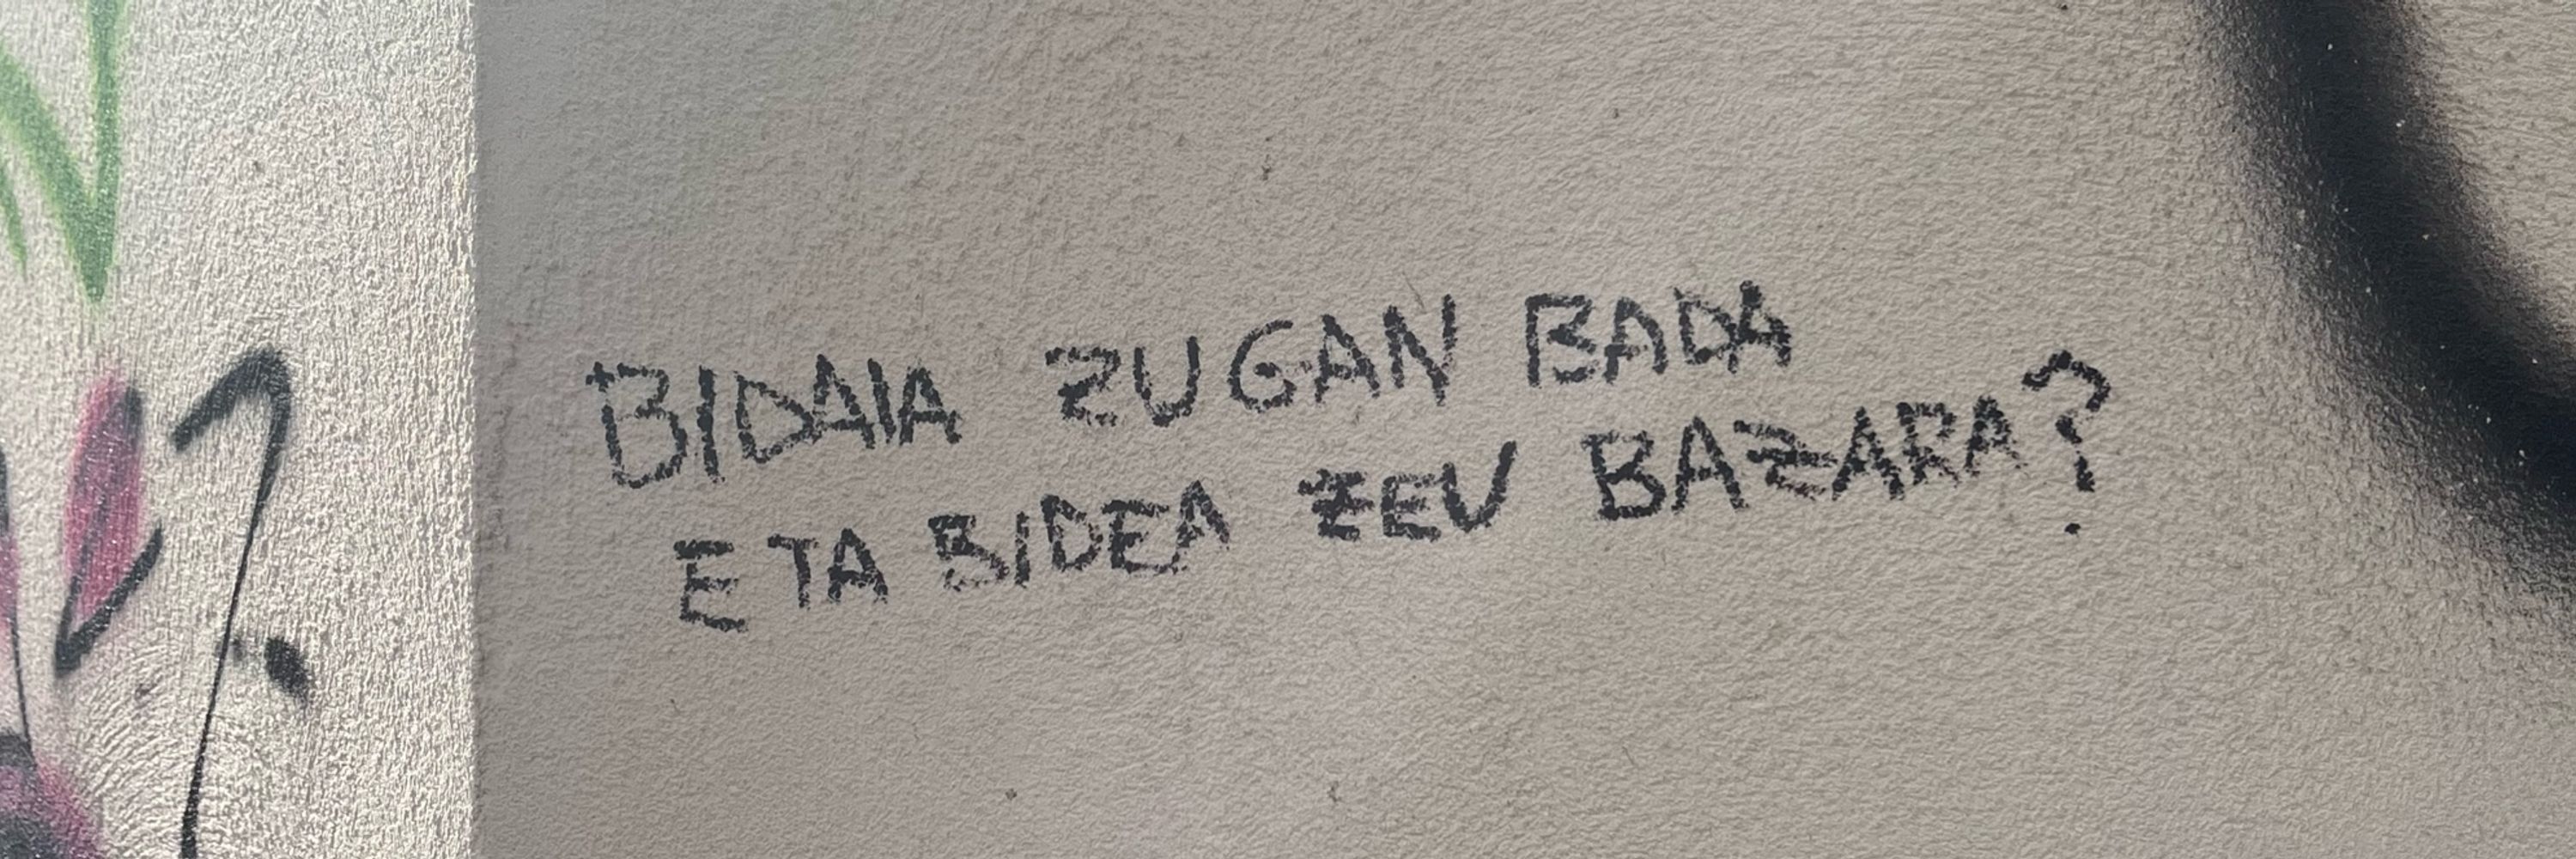 BIDAIA ZUGAN BADA
ETA BIDEA ZEU BAZARA?